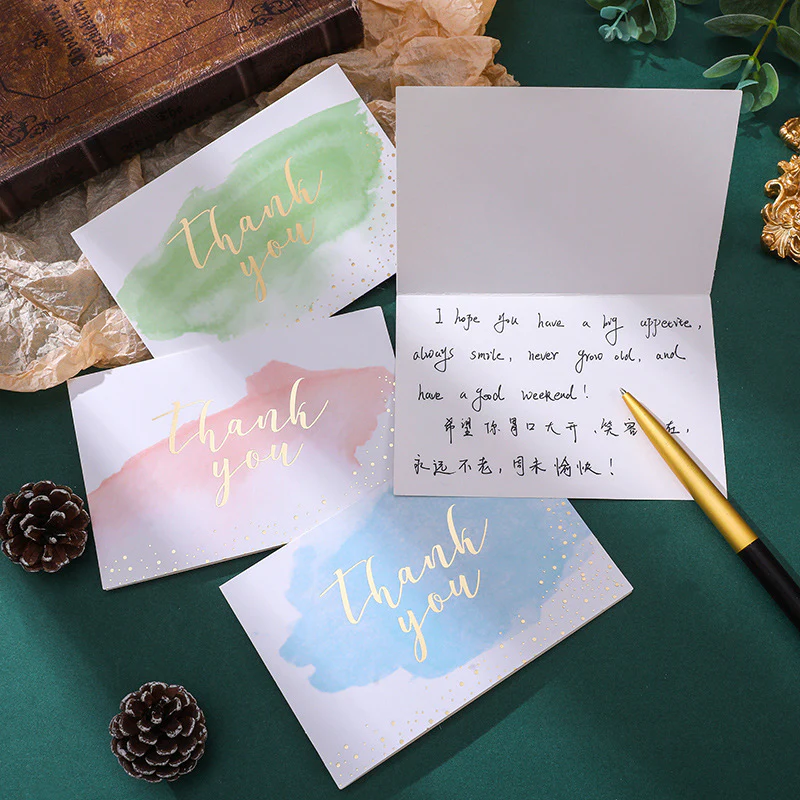 thank
you
thank
you
thank
you
I hope you have a big appetite,
always smile, never grow old, and
have a good weekend!
希望你胃口大开、笑容 在,
永远不老,周末愉快!